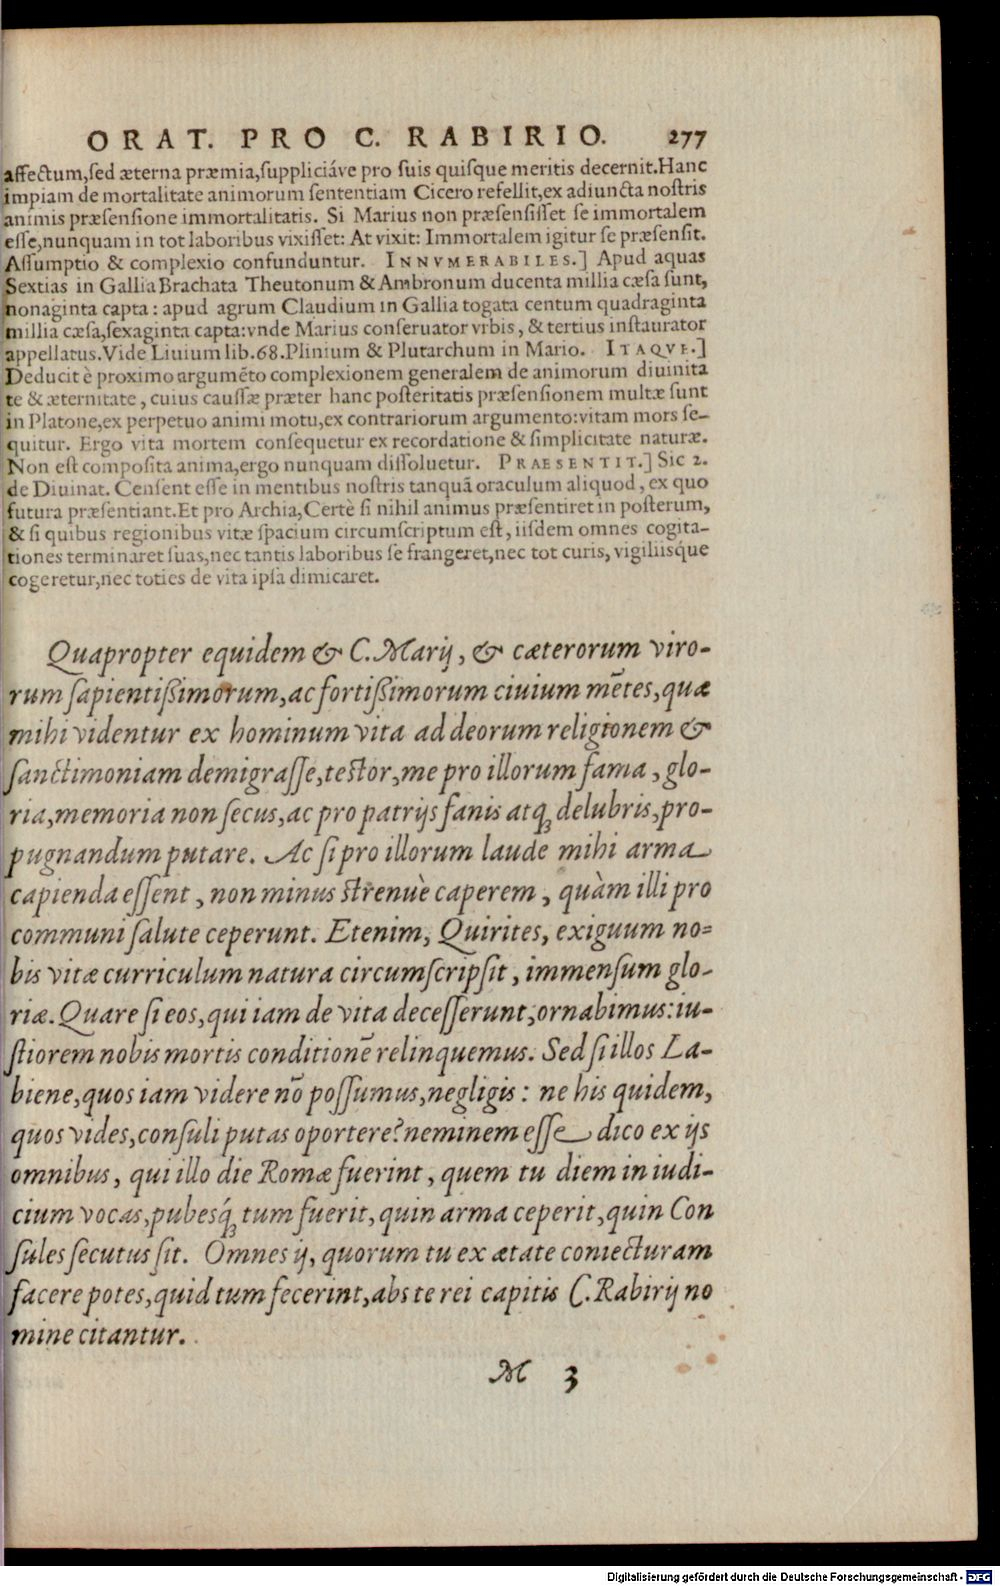 ORAT. PRO C. RABIRIO. 277
affectum,sed æterna præmia,suppliciáve pro suis quisque meritis decernit.Hanc
impiam de mortalitate animorum sententiam Cicero refellit,ex adiuncta nostris
animis præsensione immortalitatis. Si Marius non præsensisset se immortalem
esse,nunquam in tot laboribus vixisset: At vixit: Immortalem igitur se præsensit.
Assumptio & complexio confunduntur. INNVMERABILES.] Apud aquas
Sextias in Gallia Brachata Theutonum & Ambronum ducenta millia cæsa sunt,
nonaginta capta: apud agrum Claudium in Gallia togata centum quadraginta
millia cæsa,sexaginta capta:vnde Marius conseruator vrbis, & tertius instaurator
appellatus.Vide Liuium lib.68.Plinium & Plutarchum in Mario. ITAQVE.]
Deducit è proximo argumẽto complexionem generalem de animorum diuinita
te & æternitate, cuius caussæ præter hanc posteritatis præsensionem multæ sunt
in Platone,ex perpetuo animi motu,ex contrariorum argumento:vitam mors se-
quitur. Ergo vita mortem consequetur ex recordatione & simplicitate naturæ.
Non est composita anima,ergo nunquam dissoluetur. PRAESENTIT.] Sic 2.
de Diuinat. Censent esse in mentibus nostris tanquã oraculum aliquod, ex quo
futura præsentiant.Et pro Archia,Certè si nihil animus præsentiret in posterum,
& si quibus regionibus vitæ spacium circumscriptum est, iisdem omnes cogita-
tiones terminaret suas,nec tantis laboribus se frangeret,nec tot curis, vigiliisque
cogeretur,nec toties de vita ipsa dimicaret.
Quapropter equidem & C.Marij, & cæterorum viro-
rum sapientißimorum,ac fortißimorum ciuium mẽtes,quæ
mihi videntur ex hominum vita ad deorum religionem &
sanctimoniam demigrasse,testor,me pro illorum fama, glo-
ria,memoria non secus,ac pro patrijs fanis atq; delubris,pro-
pugnandum putare. Ac si pro illorum laude mihi arma
capienda essent, non minus strenuè caperem, quàm illi pro
communi salute ceperunt. Etenim, Quirites, exiguum no=
bis vitæ curriculum natura circumscripsit, immensum glo-
riæ. Quare si eos,qui iam de vita decesserunt,ornabimus:iu-
stiorem nobis mortis conditionẽ relinquemus. Sed si illos La-
biene,quos iam videre nõ possumus,negligis: ne his quidem,
quos vides,consuli putas oportere?neminem esse dico ex ijs
omnibus, qui illo die Romæ fuerint, quem tu diem in iudi-
cium vocas,pubesq́; tum fuerit,quin arma ceperit,quin Con
sules secutus sit. Omnes ij, quorum tu ex ætate coniecturam
facere potes,quid tum fecerint,abs te rei capitis C.Rabirij no
mine citantur.
M 3
Digitalisierung gefördert durch die Deutsche Forschungsgemeinschaft - DFG